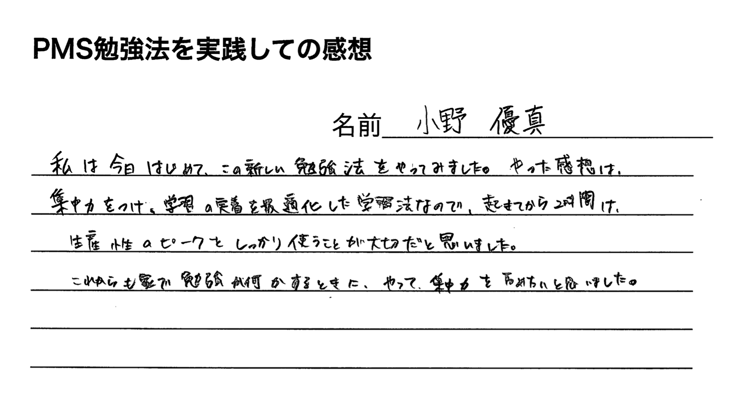 PMS勉強法を実践しての感想
名前 小野 優真
私は今日はじめて、この新しい勉強法をやってみました。やった感想は、
集中力をつけ、学習の定着を最適化した学習法なので、起きてから2時間は、
生産性のピークをしっかり使うことが大切だと思いました。
これからも家で勉強か何かするときに、やって、集中力を高めたいと思いました。